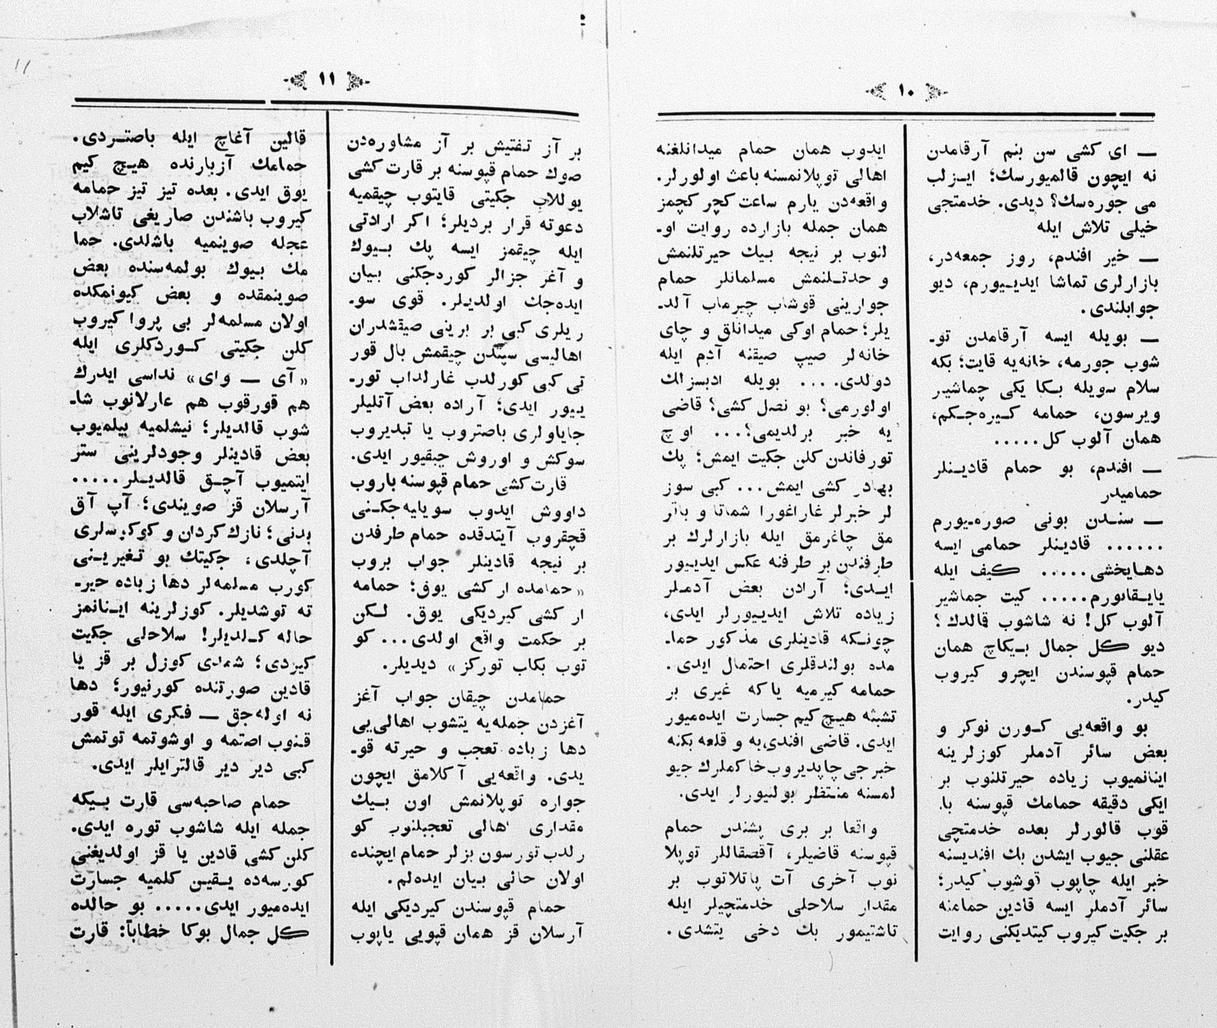 ١٠
— ای کشی سن بنم آرقامدن
نه ایچون قالمیورسك؛ ایـزلب
می جوره‌سك؟ دیدی. خدمتجی
خیلی تلاش ایله
— خیر افندم، روز جمعه‌در،
بازارلری تماشا ایدییورم، دیو
جوابلندی.
— بویله ایسه آرقامدن توـ
شوب جورمه، خانه‌یه قایت؛ بکه
سلام سویله بکا یکی چماشیر
ویرسون، حمامه کـیره‌جـکم،
همان آلوب کل.....
— افندم، بو حمام قادینلر
حمامیدر
— سنـدن بونی صوره‌یورم
...... قادینلر حمامی ایسه
دهایخشی..... کیف ایله
یایقانورم..... کیت جماشیر
آلوب کل! نه شاشوب قالدك؟
دیو کل جمال بـیکاچ همان
حمام قپوسندن ایچرو کیروب
کیدر.
بو واقعه‌یی کـورن نوکر و
بعض سائر آدملر کوزلرینه
اینانمیوب زیاده حیرتلنوب بر
ایکی دقیقه حمامك قپوسنه باـ
قوب قالورلر بعده خدمتچی
عقلنی جیوب ایشدن بك افندیسنه
خبر ایله چاپوب توشوب کیدر؛
سائر آدملر ایسه قادین حمامنه
بر جکیت کیروب کیتدیکنی روایت
ایدوب همان حمام میدانلغنه
اهالی توپلانمسنه باعث اولورلر.
واقعه‌دن یارم ساعت کچر کچمز
همان جمله بازارده روایت اوـ
لنوب بر نیجه بیك حیرتلنمش
و حدتـلنمش مسلمانلر حمام
جوارینی قوشاب چیرماب آلدـ
یلر؛ حمام اوکی میدانلق و چای
خانه‌لر صیپ صیقنه آدم ایله
دولدی.... بویله ادبسزلك
اولورمی؟ بو نصل کشی؟ قاضی
یه خبر برلدیمی؟... اوچ
تورفاندن کلن جکیت ایمش؛ پك
بهادر کشی ایمش... کبی سوز
لر خبرلر غاراغورا شماتا و باقر
مق چاغرمق ایله بازارلرك بر
طرفندن بر طرفنه عکس ایدییور
ایـدی؛ آرادن بعض آدملر
زیاده تلاش ایدییورلر ایدی،
چونـکه قادینلری مذکور حماـ
مده بولندقلری احتمال ایدی.
حمامه کیرمیه یاکه غیری بر
تشبثه هیچ کیم جسارت ایده‌میور
ایدی. قاضی افندی‌یه و قلعه بکنه
خبرجی چاپدیروب خاکملرك جیو
لمسنه منتظر بولنیورلر ایدی.
واقعا بر بری پشندن حمام
قپوسنه قاضیلر، آقصقاللر توپلا
نوب آخری آت پاتلاتوب بر
مقدار سلاحلی خدمتچیلر ایله
تاشتیمور بك دخی یتشدی.
١١
بر آز تفتیش بر آز مشاوره‌دن
صوك حمام قپوسنه بر قارت کشی
یوللاب جکیتی قایتوب چیقمیه
دعوته قرار بردیلر؛ اکر ارادتی
ایله چیقمز ایسه پك بـیوك
و آغر جزالر کوره‌جکنی بیان
ایده‌جك اولدیلر. قوی سوـ
ریلری کبی بر برینی صیقشدران
اهالیسی سپتدن چیقمش بال قور
تی کبی کورلدب غارلداب تورـ
ییور ایدی؛ آراده بعض آتلیلر
جایاولری باصتروب یا تبدیروب
سوکش و اوروش چیقیور ایدی.
قارت کشی حمام قپوسنه باروب
داووش ایدوب سویلیه‌جکـنی
قچقروب آیتدقده حمام طرفدن
بر نیجه قادینلر جواب بروب
«حمامده ار کشی یوق؛ حمامه
ار کشی کیردیکی یوق. لـکن
بر حکمت واقع اولدی... کو
توب بکاب تورکز» دیدیلر.
حمامدن چیقان جواب آغز
آغزدن جمله‌یه یتشوب اهالی‌یی
دها زیاده تعجب و حیرته قوـ
یدی. واقعه‌یی آکلامق ایچون
جواره توپلانمش اون بـیك
مقداری اهالی تعجبلنوب کو
رلدب تورسون بزلر حمام ایچنده
اولان حالی بیان ایده‌لم.
حمام قپوسندن کیردیکی ایله
آرسلان قز همان قپویی یاپوب
قالین آغاچ ایله باصتـردی.
حمامك آزبارنده هیـچ کیم
یوق ایدی. بعده تیز تیز حمامه
کیروب باشندن صاریغی تاشلاب
عجله صوینمیه باشلدی. حما
مك بـیوك بولمه‌سنده بعض
صوینمقده و بعض کیونمکده
اولان مسلمه‌لر بی پروا کیروب
کلن جکیتی کـوردکلری ایله
«آی — وای» نداسی ایدرك
هم قورقوب هم عارلانوب شاـ
شوب قالدیلر؛ نیشلمیه بیلمیوب
بعض قادینلر وجودلرینی ستر
ایتمیوب آچـق قالدیـلر.....
آرسلان قز صویندی؛ آپ آق
بدنی؛ نازك کردان و کوکرسلری
آچلدی، جکیتك بو تغیریـنی
کورب مسلمه‌لر دها زیاده حیرـ
ته توشدیلر. کوزلرینه اینـانمز
حاله کـلدیلر! سلاحلی جکیت
کیردی؛ شمدی کوزل بر قز یا
قادین صورتنده کورنیور؛ دها
نه اوله‌جق — فکری ایله قور
قنوب اصتمه و اوشوتمه توتمش
کبی دیر دیر قالترایلر ایدی.
حمام صاحبه‌سی قارت بیـکه
جمله ایله شاشوب توره ایدی.
کلن کشی قادین یا قز اولدیغنی
کورسه‌ده یـقین کلمیه جسارت
ایده‌میور ایدی..... بو حالده
کل جمال بوکا خطاباً: قارت